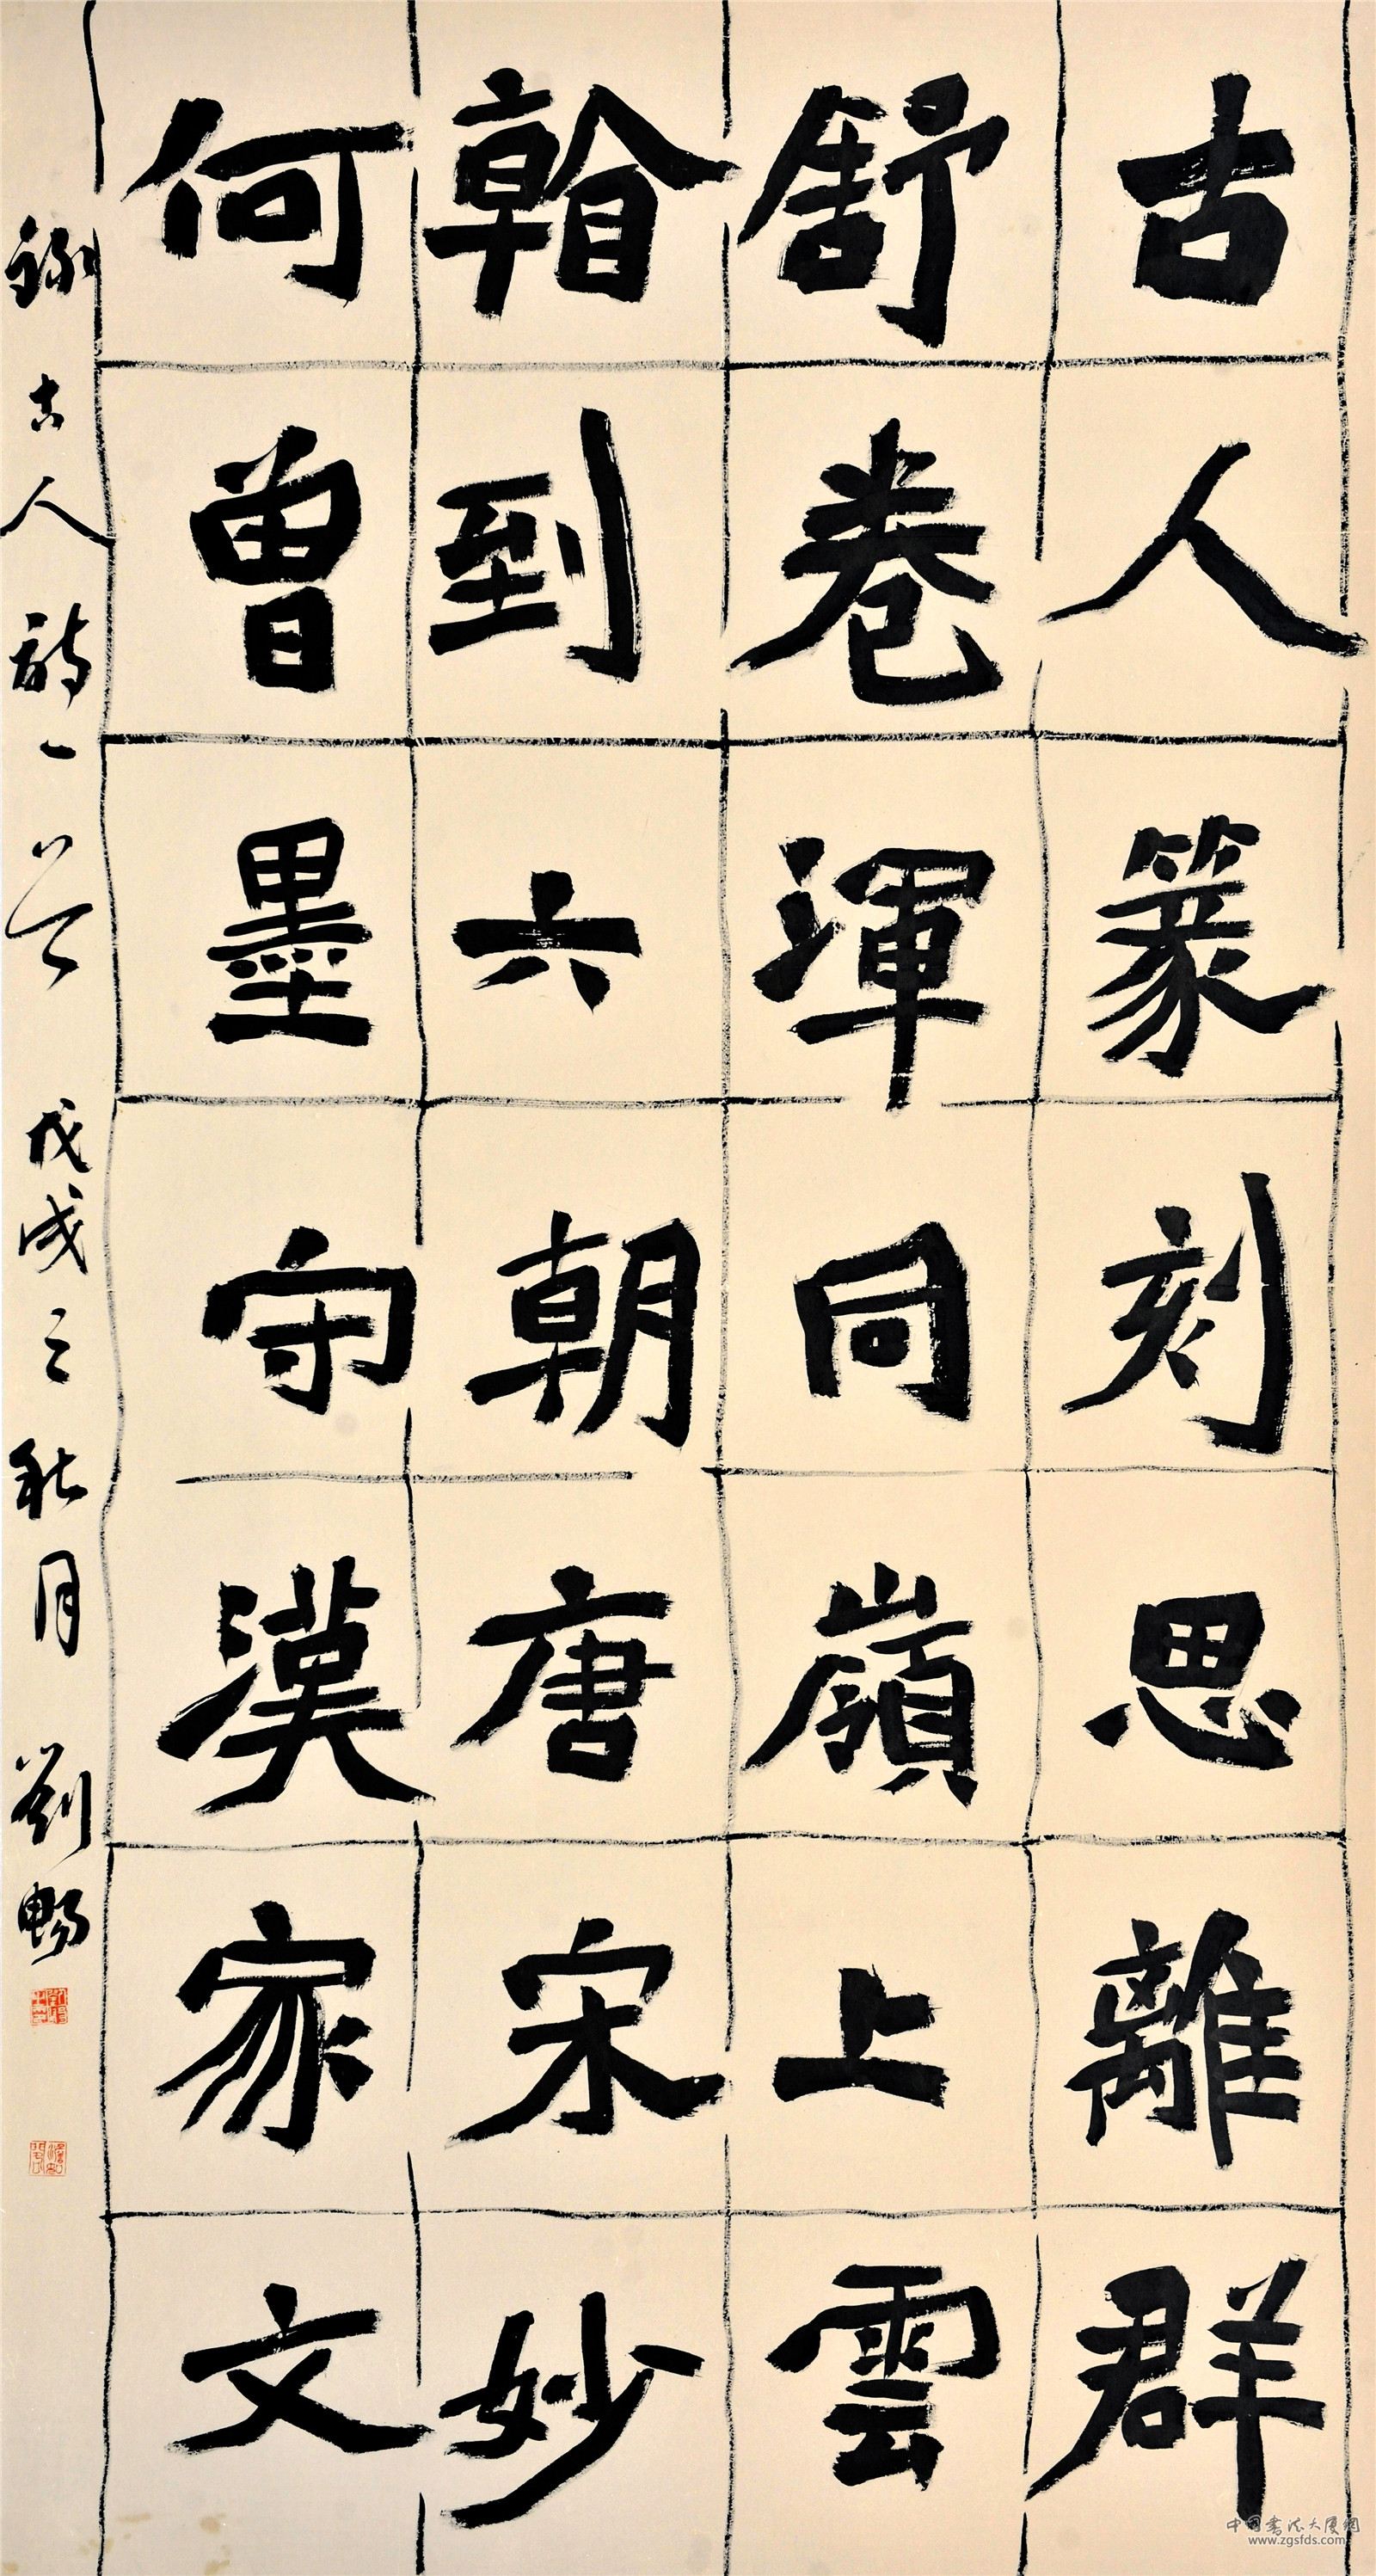 古人篆刻思離群
舒卷渾同嶺上雲
看到六朝唐宋妙
何曾墨守漢家文
錄古人詩一首 戊戌之秋月 劉暢
中国书法大厦网
www.zgsfds.com